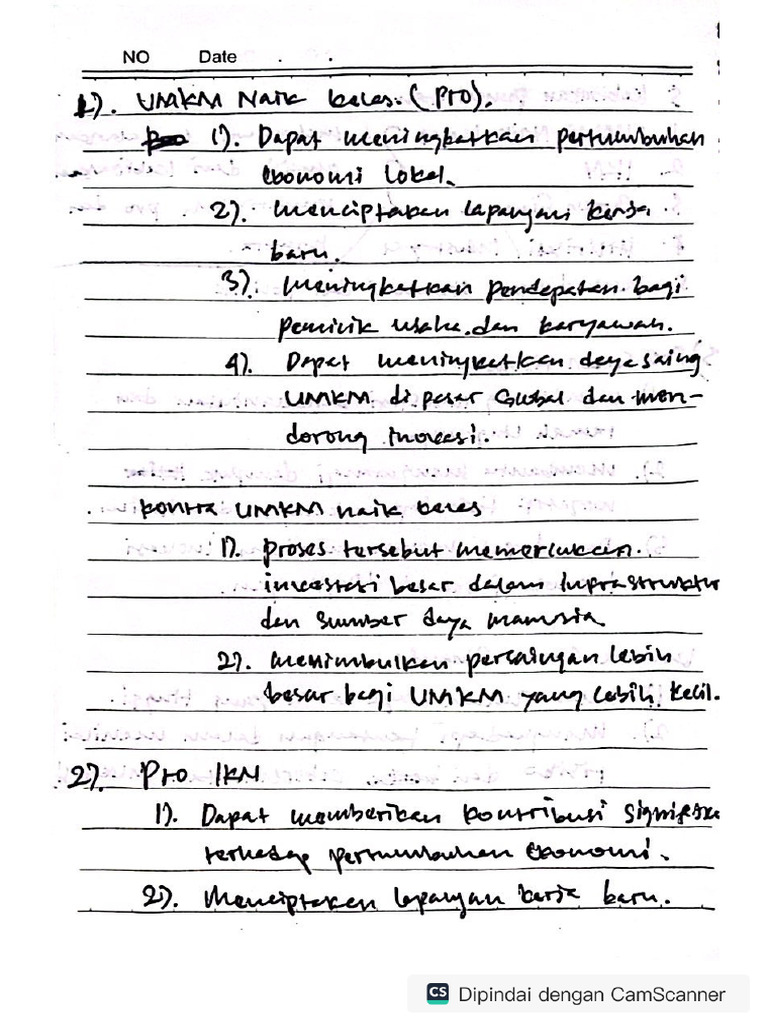 NO Date . .
1). UMKM Naik kelas. (Pro).
1). Dapat meningkatkan pertumbuhan
ekonomi lokal.
2). Menciptakan lapangan kerja
baru.
3). Meningkatkan pendapatan bagi
pemilik usaha dan karyawan.
4). Dapat meningkatkan daya saing
UMKM di pasar Global dan men-
dorong inovasi.
kontra UMKM naik kelas
1). proses tersebut memerlukan
investasi besar dalam infrastruktur
dan sumber daya manusia
2). menimbulkan persaingan lebih
besar bagi UMKM yang lebih kecil.
2). Pro IKN
1). Dapat memberikan kontribusi signifikan
terhadap pertumbuhan ekonomi.
2). Menciptakan lapangan kerja baru.
CS Dipindai dengan CamScanner